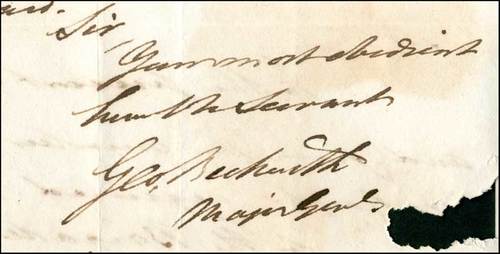 Sir,
Your most obedient
humble Servant
Geo, Beckwith
Major Genl